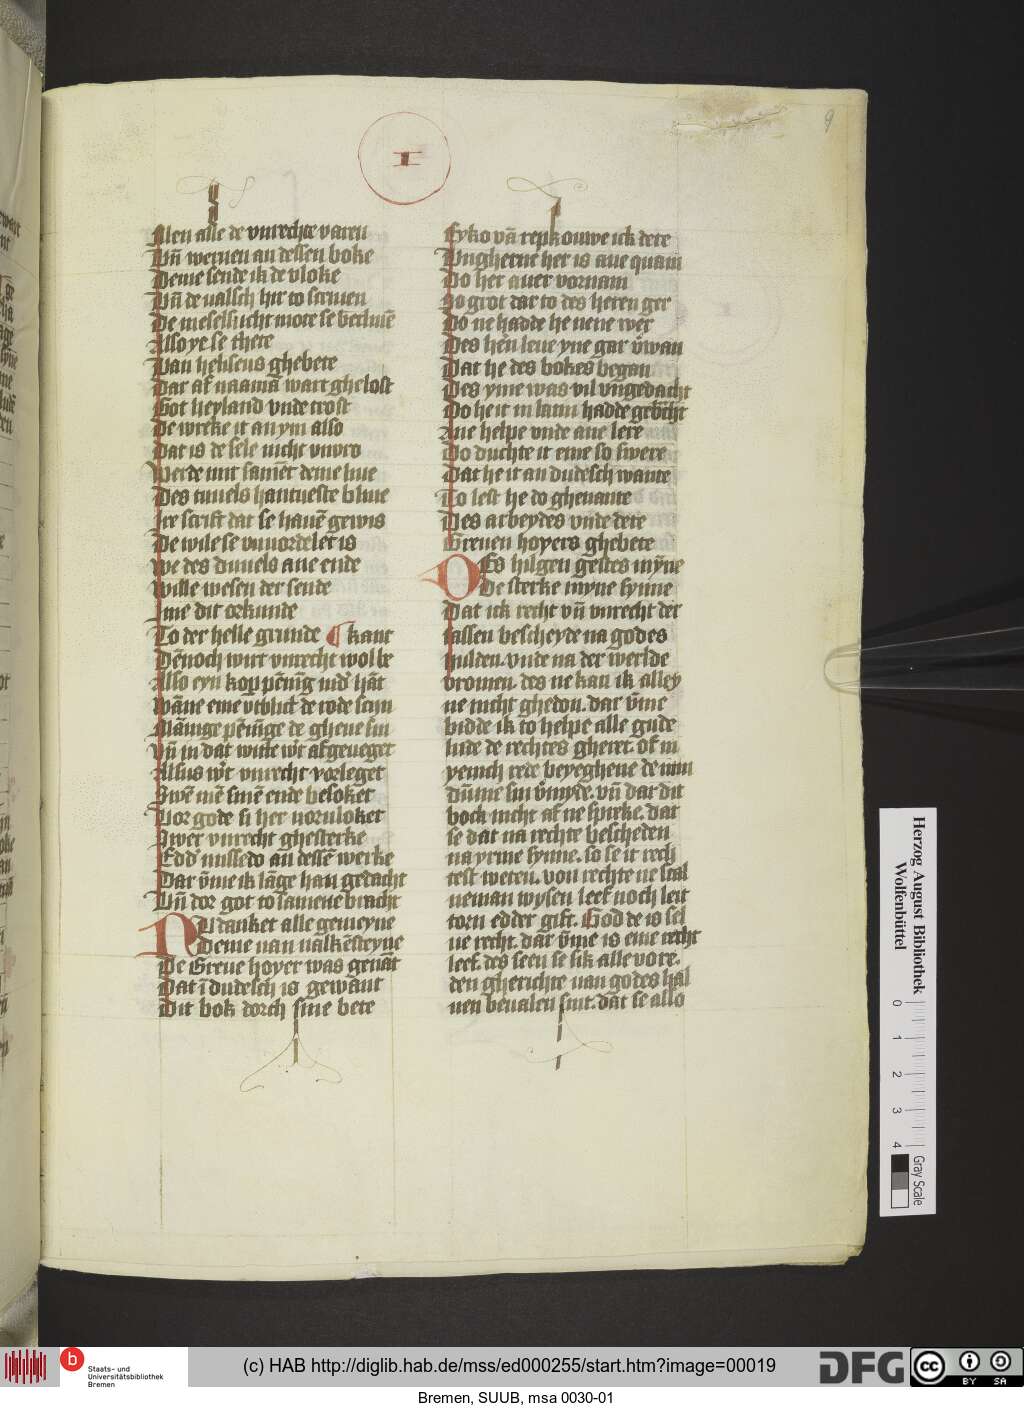 I
9
Allen alle de vnrechte varen
Vn̄ weruen an dessen boke
Deme sende ik de vloke
Vn̄ de valsch hir to scriuen
De meselsucht mote se vʼcliuē
Also ye se there
Van helyseus ghebete
Dar af naaman wart ghelost
Got heyland vnde trost
De wreke it an ym also
Dat is de sele nicht vnvro
Werde mit samēt deme liue
Des tuuels hantueste bliue
Ire scrift dat se hauē gewis
De wile se vnuordelet is
We des duuels ane ende
Wille wesen der sende
Ime dit orkunde
To der helle grunde ¶ kant
Dēnoch wirt vnrecht wol be
Also eyn koppēnīg nidʼ hāt
Wāne eme vtblict de rode scin
Mānige pēnīge de gheue sin
vn̄ in dat witte wʼt afgeueget
Alsus wʼt vnrecht vorleget
Swē mē sinē ende besoket
Vor gode si her voruloket
Swer vnrecht ghesterke
Edd' misse do an dessē werke
Dar vʼme ik lāge han gedacht
Vn̄ dor got to samene bracht
NU danket alle gemeyne
Deme van valkēsteyne
De Greue hoyer was genāt
Dat ī dudesch is gewant
Dit bok dorch sine bete
Eyko vā repkouwe ick dete
Vngherne her is aue quam
Do her auer vornam
So grot dar to des heren ger
Do ne hadde he nene wer
Des hen leue yne gar vʼwan
Dat he des bokes began
Des yme was vil vngedacht
Do he it in latin hadde gebʼcht
Ane helpe vnde ane lere
Do duchte it eme so swere
Dat he it an dudesch wante
To lest he do ghenante
Des arbeydes vnde dete
Greuen hoyers ghebete
DEs hilgen gestes mȳne
De sterke myne synne
Dat ick recht vn̄ vnrecht der
sassen bescheyde na godes
hulden. vnde na der werlde
vromen. des ne kan ik alley
ne nicht ghedon. dar vʼme
bidde ik to helpe alle gude
lude de rechtes gheret. of in
yemich rede beyeghene de min
dūme sin vʼmyde. vn̄ dar dit
bock nicht af ne spreke. dat
se dat na rechte bescheden
na yrme synne. so se it rech
test weten. von rechte ne scal
neman wysen leef noch leit
torn edder gift. God de is sel
ue recht. dar vʼme is eme recht
leef. des seen se sik alle vore.
den gherichte van godes hal
uen beualen sint. dat se also
Herzog August Bibliothek
Wolfenbüttel
0 1 2 3 4
Gray Scale
b
Staats- und
Universitätsbibliothek
Bremen
(c) HAB http://diglib.hab.de/mss/ed000255/start.htm?image=00019
DFG
cc BY SA
Bremen, SUUB, msa 0030-01